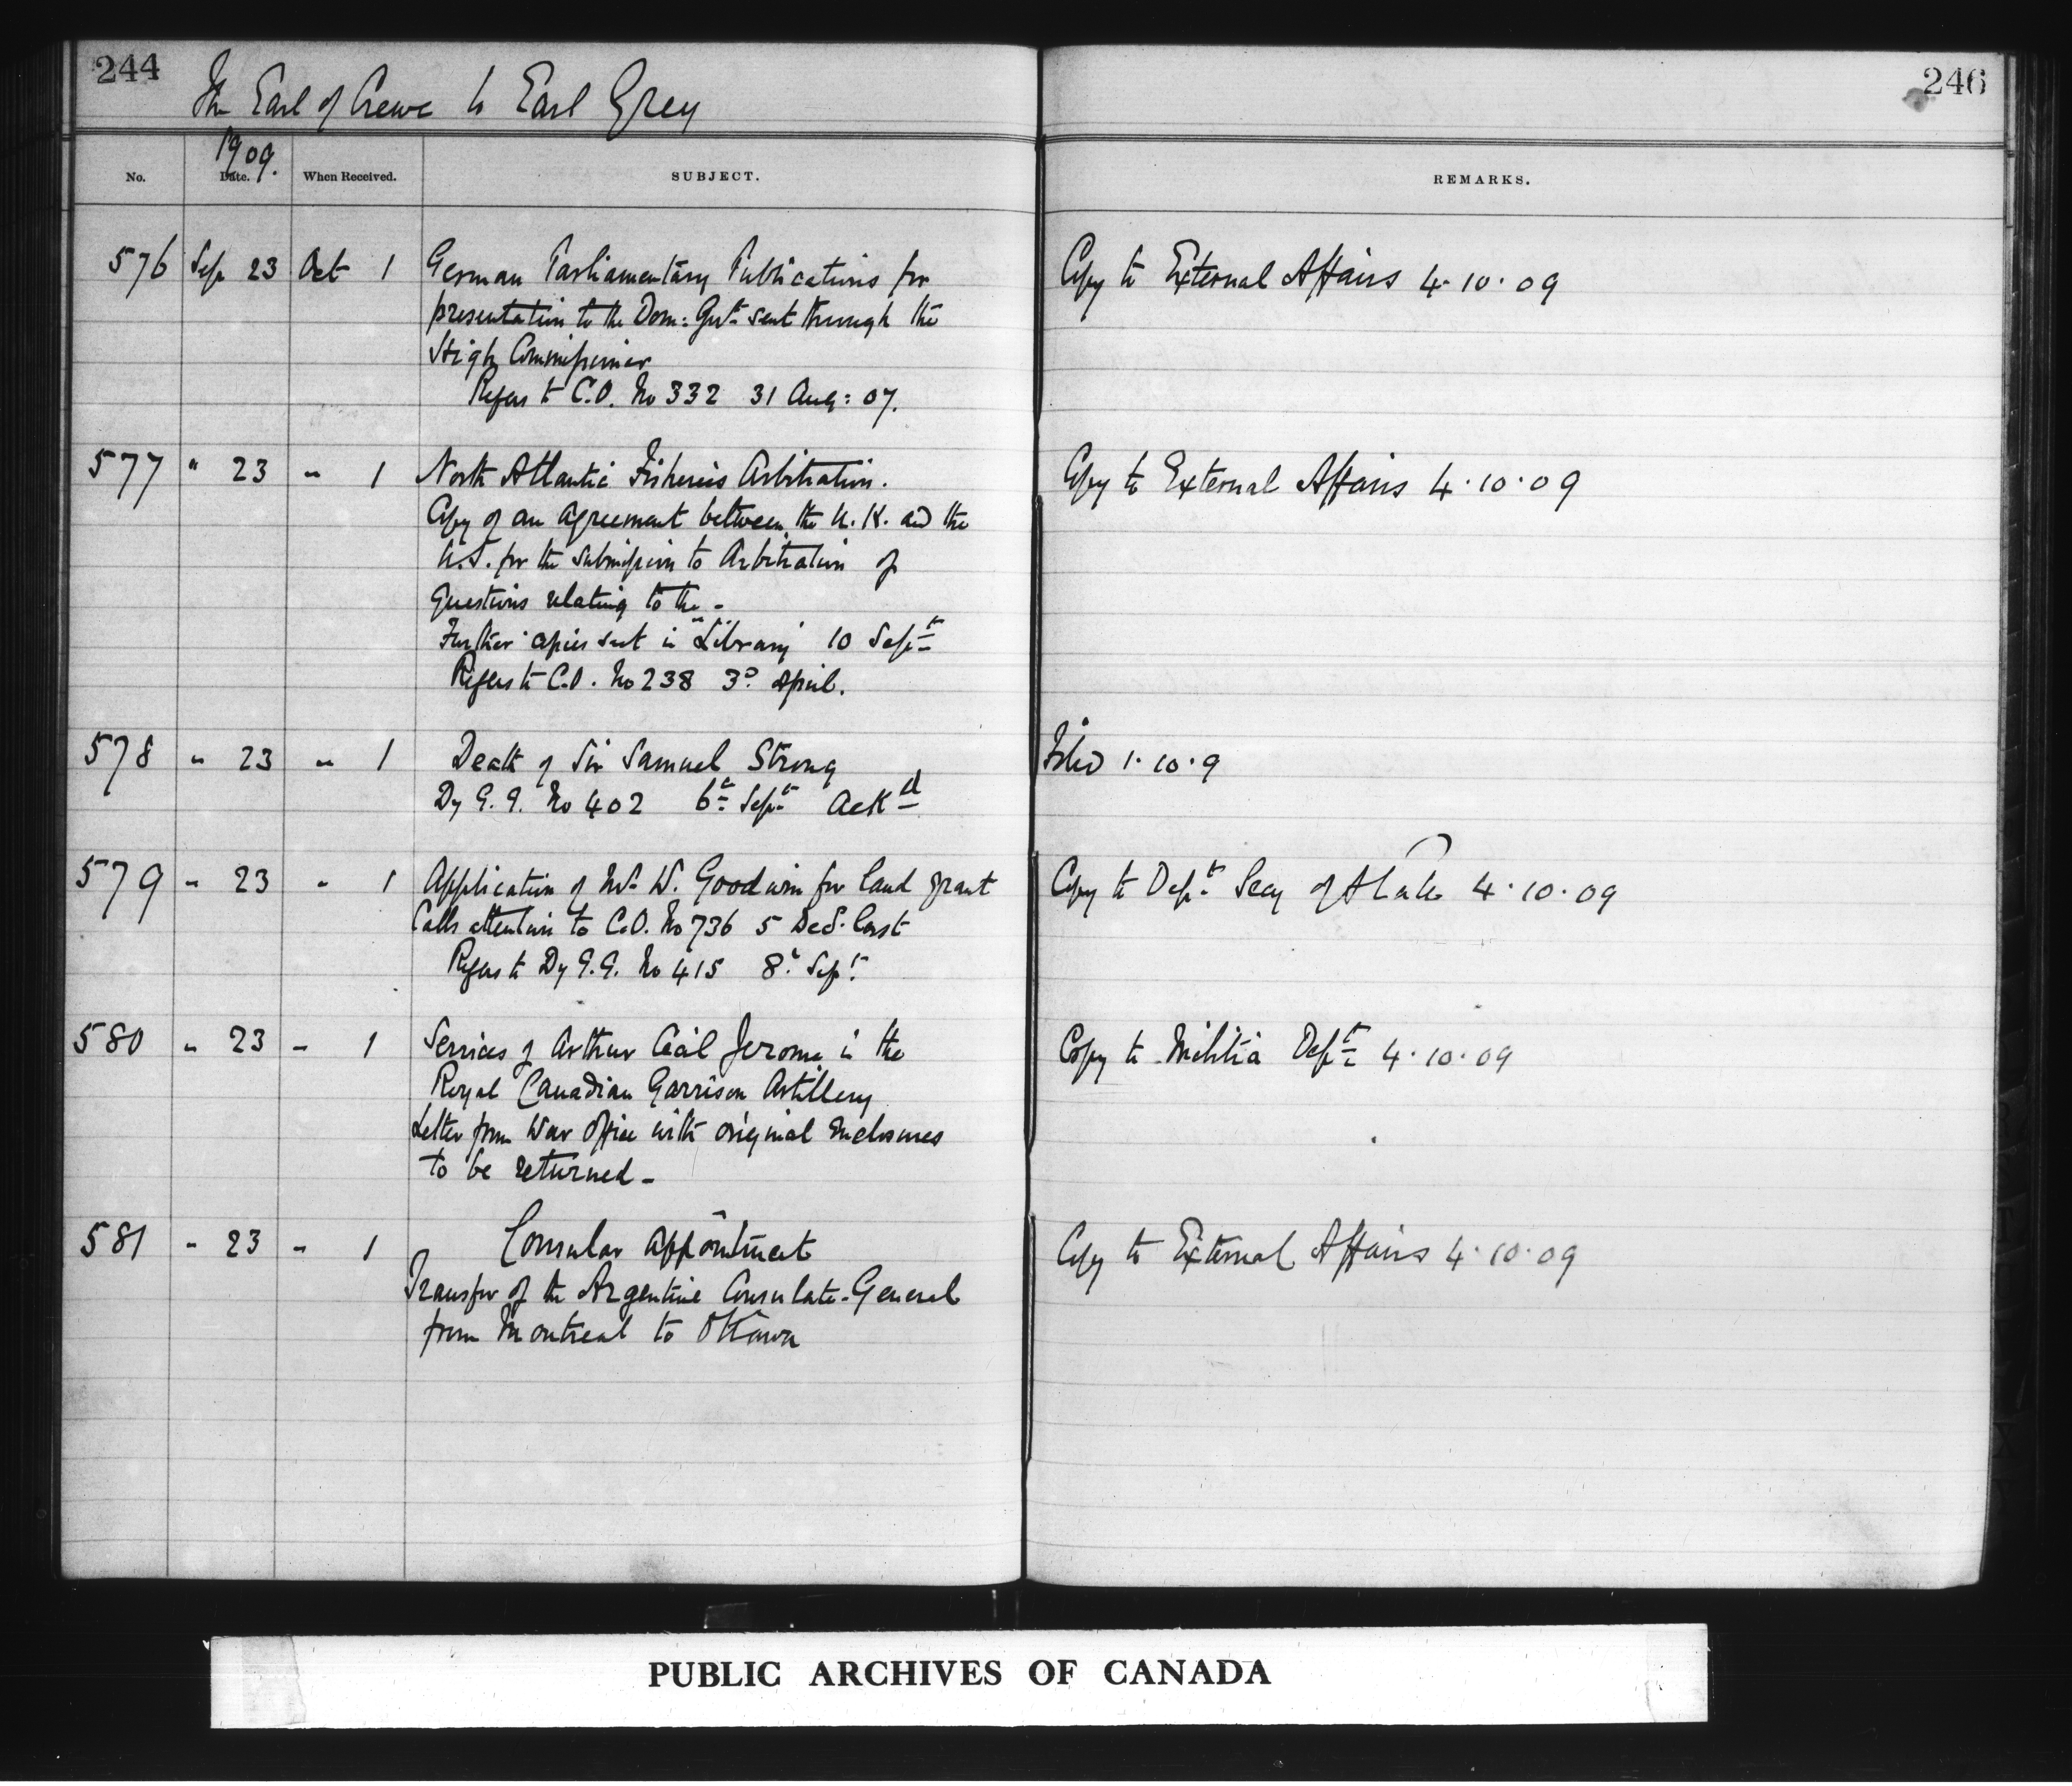 244
The Earl of Crewe to Earl Grey
246
1909.
No. Date. When Received. SUBJECT. REMARKS.
576 Sep 23 Oct 1 German Parliamentary Publications for Copy to External Affairs 4.10.09
presentation to the Dom: Govt sent through the
High Commissioner
Refers to C.O. No 332 31 Aug: 07.
577 " 23 " 1 North Atlantic Fisheries Arbitration. Copy to External Affairs 4.10.09
Copy of an agreement between the U.K. and the
U.S. for the submission to Arbitration of
Questions relating to the -
Further copies sent in "Library" 10 Sept
Refers to C.O. No 238 3d April.
578 " 23 " 1 Death of Sir Samuel Strong Filed 1.10.9
Dy G.G. No 402 6th Sept Ackd
579 " 23 " 1 Application of W. Goodwin for land grant Copy to Dept Secy of State 4.10.09
Calls attention to C.O. No 736 5 Dec. last
Refers to Dy G.G. No 415 8th Sept.
580 " 23 " 1 Services of Arthur Cecil Jerome in the Copy to Militia Dept 4.10.09
Royal Canadian Garrison Artillery
Letter from War Office with original Enclosures
to be returned -
581 " 23 " 1 Consular Appointment Copy to External Affairs 4.10.09
Transfer of the Argentine Consulate-General
from Montreal to Ottawa
PUBLIC ARCHIVES OF CANADA